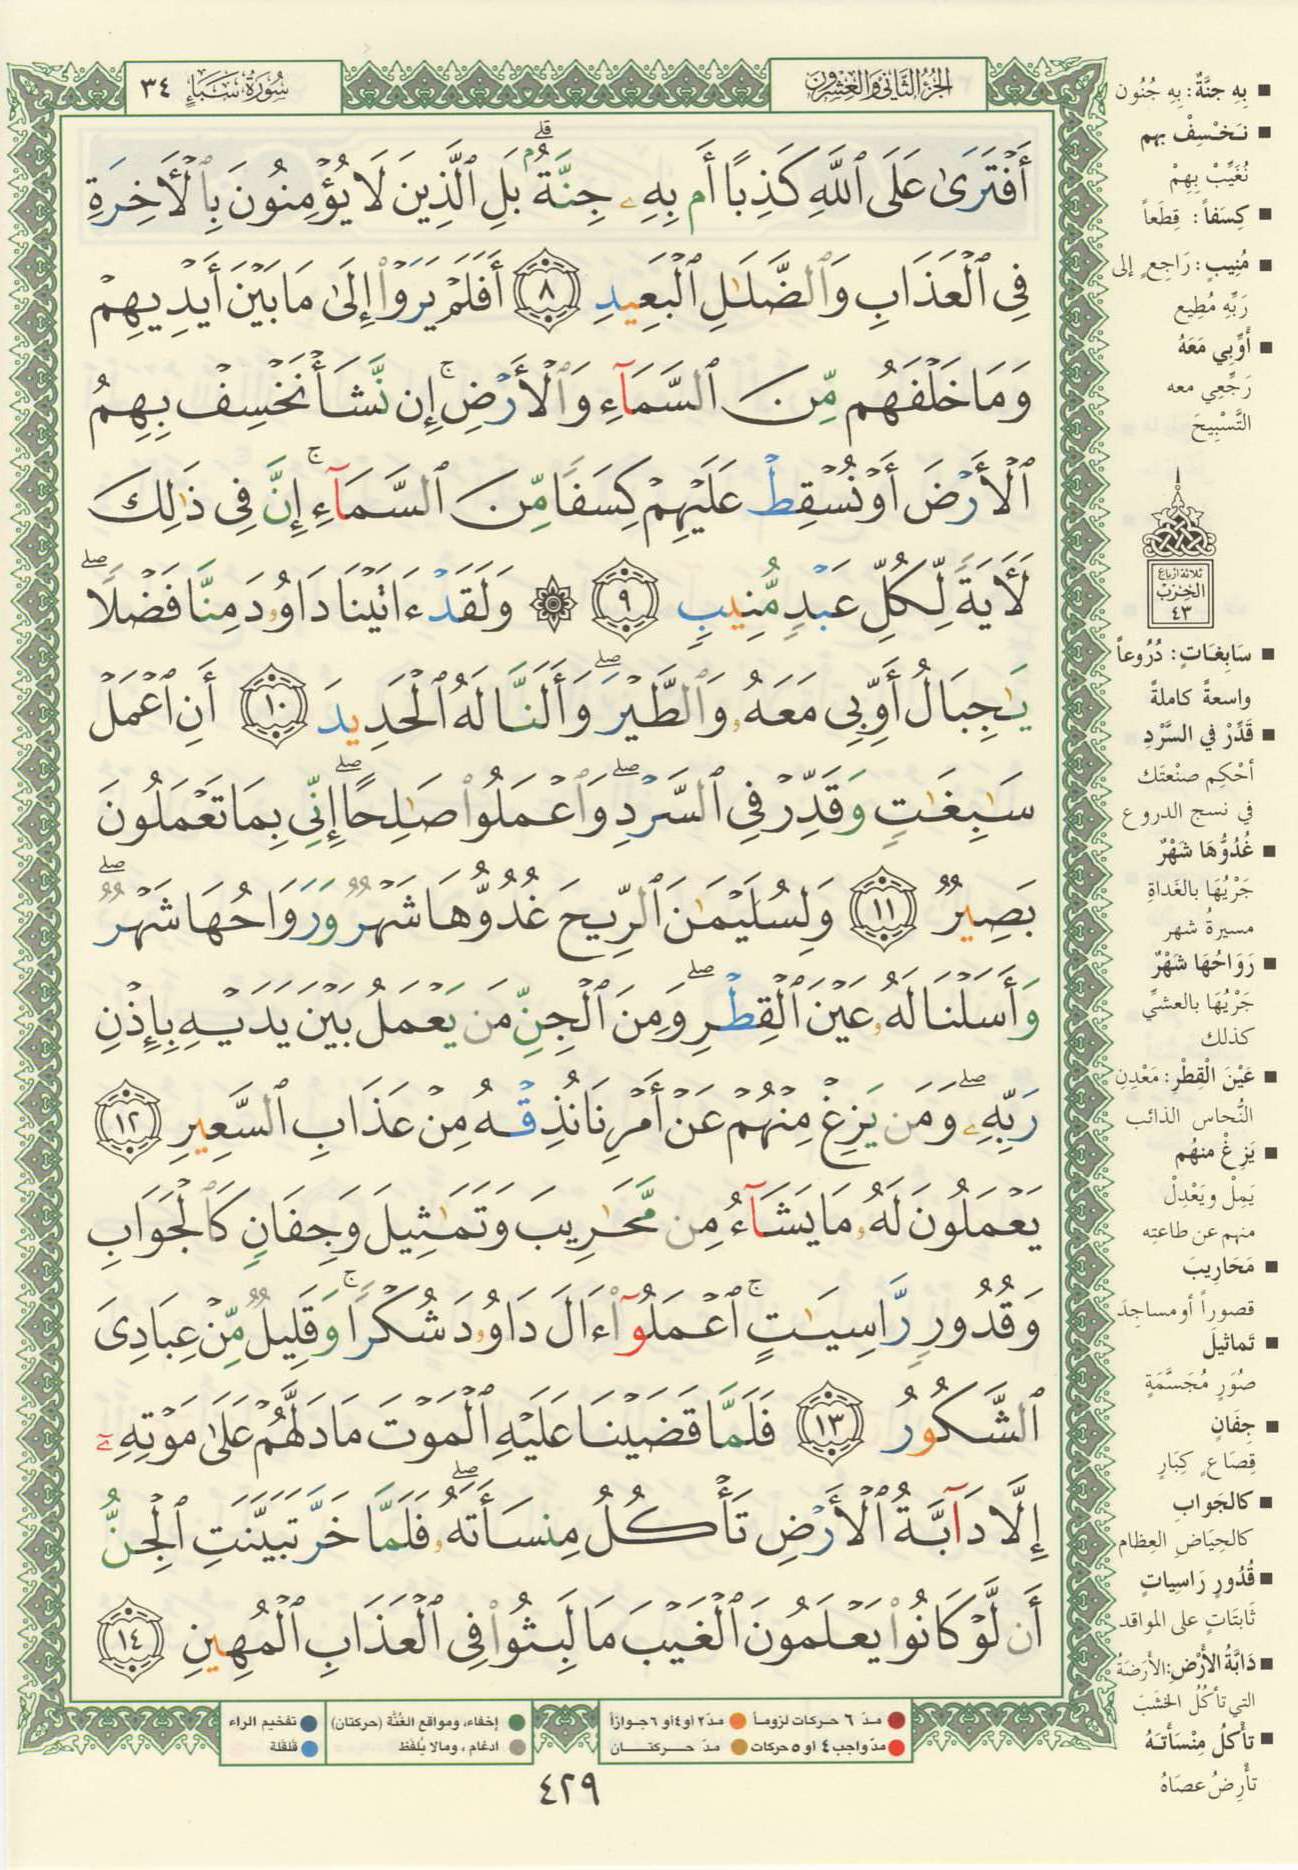 الجزء الثاني والعشرون
سورة سبإ ٣٤
أَفْتَرَىٰ عَلَى ٱللَّهِ كَذِبًا أَم بِهِۦ جِنَّةٌۢ ۗ بَلِ ٱلَّذِينَ لَا يُؤْمِنُونَ بِٱلْأَخِرَةِ
فِى ٱلْعَذَابِ وَٱلضَّلَٰلِ ٱلْبَعِيدِ ٨ أَفَلَمْ يَرَوْا۟ إِلَىٰ مَا بَيْنَ أَيْدِيهِمْ
وَمَا خَلْفَهُم مِّنَ ٱلسَّمَآءِ وَٱلْأَرْضِ ۚ إِن نَّشَأْ نَخْسِفْ بِهِمُ
ٱلْأَرْضَ أَوْ نُسْقِطْ عَلَيْهِمْ كِسَفًا مِّنَ ٱلسَّمَآءِ ۚ إِنَّ فِى ذَٰلِكَ
لَأَيَةً لِّكُلِّ عَبْدٍ مُّنِيبٍ ٩ ۞ وَلَقَدْ ءَاتَيْنَا دَاوُۥدَ مِنَّا فَضْلًا ۖ
يَٰجِبَالُ أَوِّبِى مَعَهُۥ وَٱلطَّيْرَ ۖ وَأَلَنَّا لَهُ ٱلْحَدِيدَ ١٠ أَنِ ٱعْمَلْ
سَٰبِغَٰتٍ وَقَدِّرْ فِى ٱلسَّرْدِ ۖ وَٱعْمَلُوا۟ صَٰلِحًا ۖ إِنِّى بِمَا تَعْمَلُونَ
بَصِيرٌ ١١ وَلِسُلَيْمَٰنَ ٱلرِّيحَ غُدُوُّهَا شَهْرٌ وَرَوَاحُهَا شَهْرٌ ۖ
وَأَسَلْنَا لَهُۥ عَيْنَ ٱلْقِطْرِ ۖ وَمِنَ ٱلْجِنِّ مَن يَعْمَلُ بَيْنَ يَدَيْهِ بِإِذْنِ
رَبِّهِۦ ۖ وَمَن يَزِغْ مِنْهُمْ عَنْ أَمْرِنَا نُذِقْهُ مِنْ عَذَابِ ٱلسَّعِيرِ ١٢
يَعْمَلُونَ لَهُۥ مَا يَشَآءُ مِن مَّحَٰرِيبَ وَتَمَٰثِيلَ وَجِفَانٍ كَٱلْجَوَابِ
وَقُدُورٍ رَّاسِيَٰتٍ ۚ ٱعْمَلُوٓا۟ ءَالَ دَاوُۥدَ شُكْرًا ۚ وَقَلِيلٌ مِّنْ عِبَادِىَ
ٱلشَّكُورُ ١٣ فَلَمَّا قَضَيْنَا عَلَيْهِ ٱلْمَوْتَ مَا دَلَّهُمْ عَلَىٰ مَوْتِهِۦٓ
إِلَّا دَآبَّةُ ٱلْأَرْضِ تَأْكُلُ مِنسَأَتَهُۥ ۖ فَلَمَّا خَرَّ تَبَيَّنَتِ ٱلْجِنُّ
أَن لَّوْ كَانُوا۟ يَعْلَمُونَ ٱلْغَيْبَ مَا لَبِثُوا۟ فِى ٱلْعَذَابِ ٱلْمُهِينِ ١٤
بِهِ جنَّةٌ: بِهِ جُنُون
نَخْسِفْ بهم
نُغَيِّبْ بِهِمْ
كِسَفاً: قِطَعاً
مُنِيبٍ: رَاجِعٍ إلى
رَبِّهِ مُطِيع
أَوِّبي مَعَهُ
رَجِّعِي معه
التَّسْبِيحَ
ثلاثة أرباع
الحزب
٤٣
سَابِغَاتٍ: دُرُوعاً
واسعةً كاملةً
قَدِّرْ في السَّرْدِ
أحْكِم صنْعتَك
في نسج الدروع
غُدُوُّهَا شَهْرٌ
جَرْيُهَا بالغَداةِ
مسيرةُ شهر
رَوَاحُهَا شَهْرٌ
جَرْيُهَا بالعشيِّ
كذلك
عَيْنَ الْقِطْرِ: مَعْدِنِ
النُّحاس الذائب
يَزِغْ منهُم
يَمِلْ ويَعْدِلْ
منهم عن طاعتِه
مَحَارِيبَ
قصوراً أو مساجدَ
تَماثيلَ
صُوَرٍ مُجَسَّمَةٍ
جِفَانٍ
قِصَاعٍ كِبَارٍ
كالجَواب
كالحِيَاضِ العِظام
قُدُورٍ رَاسِياتٍ
ثَابتَاتٍ على المواقد
دَابَّةُ الأرْضِ: الأَرَضَةُ
التي تأكُلُ الخشَبَ
تأكُلُ مِنْسَأتَهُ
تأْرِضُ عصَاهُ
مدّ ٦ حركات لزوماً مدّ ٢ او ٤ او ٦ جوازاً
مدّ واجب ٤ او ٥ حركات مدّ حركتان
إخفاء، ومواقع الغُنَّة (حركتان) تفخيم الراء
ادغام، ومالا يُلفظ قلقلة
٤٢٩